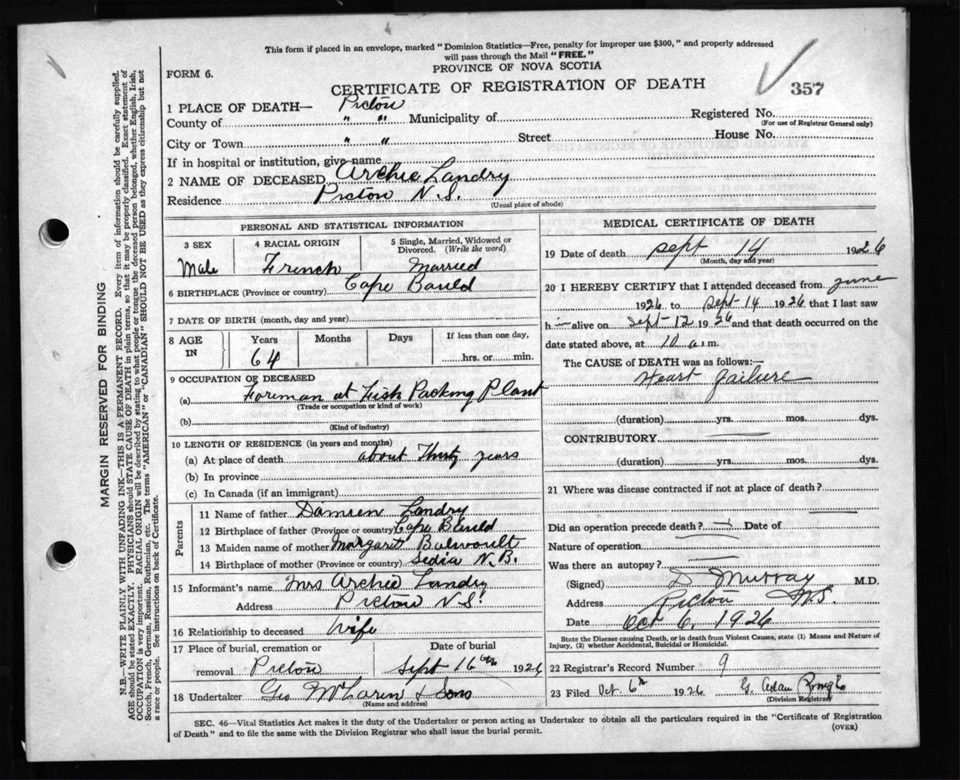 This form if placed in an envelope, marked "Dominion Statistics—Free, penalty for improper use $300," and properly addressed
will pass through the Mail "FREE."
PROVINCE OF NOVA SCOTIA
FORM 6.
CERTIFICATE OF REGISTRATION OF DEATH
357
1 PLACE OF DEATH— Pictou
County of " " Municipality of Registered No.
(For use of Registrar General only)
City or Town " " Street House No.
If in hospital or institution, give name
2 NAME OF DECEASED Archie Landry
Residence Pictou N.S.
(Usual place of abode)
PERSONAL AND STATISTICAL INFORMATION
3 SEX 4 RACIAL ORIGIN 5 Single, Married, Widowed or Divorced. (Write the word)
Male French Married
6 BIRTHPLACE (Province or country) Cape Bauld
7 DATE OF BIRTH (month, day and year)
8 AGE IN Years Months Days If less than one day,
64 hrs. or min.
9 OCCUPATION OF DECEASED
(a) Foreman at Fish Packing Plant
(Trade or occupation or kind of work)
(b)
(Kind of industry)
10 LENGTH OF RESIDENCE (in years and months)
(a) At place of death about Thirty years
(b) In province
(c) In Canada (if an immigrant)
Parents
11 Name of father Damien Landry
12 Birthplace of father (Province or country) Cape Bauld
13 Maiden name of mother Margaret
14 Birthplace of mother (Province or country) N.B.
15 Informant's name Mrs Archie Landry
Address Pictou N.S.
16 Relationship to deceased Wife
17 Place of burial, cremation or removal Pictou Date of burial Sept 16th 1926
18 Undertaker Geo McLaren & Sons
(Name and address)
MEDICAL CERTIFICATE OF DEATH
19 Date of death Sept 14 1926
(Month, day and year)
20 I HEREBY CERTIFY that I attended deceased from June
1926 to Sept 14 1926 that I last saw
h alive on Sept 12 1926 and that death occurred on the
date stated above, at 10 a.m.
The CAUSE of DEATH was as follows:—
Heart failure
(duration) yrs. mos. dys.
CONTRIBUTORY
(duration) yrs. mos. dys.
21 Where was disease contracted if not at place of death?
Did an operation precede death? Date of
Nature of operation
Was there an autopsy?
(Signed) D Murray M.D.
Address Pictou N.S.
Date Oct 6, 1926
State the Disease causing Death, or in death from Violent Causes, state (1) Means and Nature of
Injury, (2) whether Accidental, Suicidal or Homicidal.
22 Registrar's Record Number 9
23 Filed Oct. 6th 1926 G.
(Division Registrar)
SEC. 46—Vital Statistics Act makes it the duty of the Undertaker or person acting as Undertaker to obtain all the particulars required in the "Certificate of Registration
of Death" and to file the same with the Division Registrar who shall issue the burial permit.
(OVER)
MARGIN RESERVED FOR BINDING
N.B.—WRITE PLAINLY WITH UNFADING INK—THIS IS A PERMANENT RECORD. Every item of information should be carefully supplied.
AGE should be stated EXACTLY. PHYSICIANS should STATE CAUSE OF DEATH in plain terms, so that it may be properly classified. Exact statement of
OCCUPATION is very important. RACIAL ORIGIN will be described by stating to what people or tongue the deceased person belonged, whether English, Irish,
Scotch, French, German, Russian, Ruthenian, etc. The terms "AMERICAN" or "CANADIAN" SHOULD NOT BE USED as they express citizenship but not
a race or people. See instructions on back of Certificate.